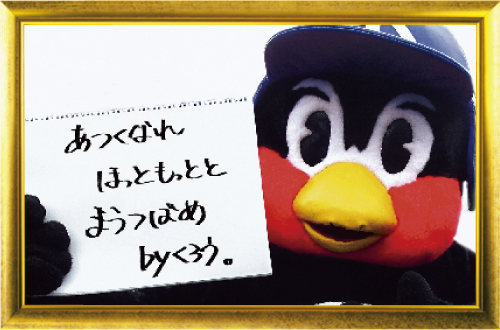 あつくなれ
ほっともっとと
まうつばめ
byくろう。